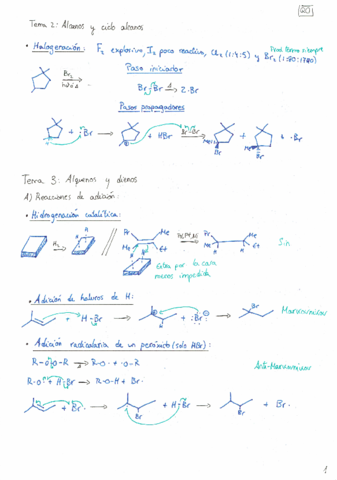 QOI
Tema 2: Alcanos y ciclo alcanos
• Halogenación: F₂ explosivo, I₂ poco reactivo, Cl₂ (1:4:5) y Br₂ (1:80:1700)
Paso iniciador
Br₂
Br-Br Δ 2·Br
Pasos propagadores
+ ·Br → + HBr Br-Br → + + ·Br
Me Br
Br
Tema 3: Alquenos y dienos
A) Reacciones de adición:
• Hidrogenación catalítica:
H₂
Pr Me Pd, Pt, Ni Pr Me Sin
Me Et Me H H Et
Entra por la cara
menos impedida
• Adición de haluros de H:
+ H-Br → + :Br:⊖ → Br Markovnikov
• Adición radicalaria de un peróxido (solo HBr):
R-O-O-R → R-O· + ·O-R Anti-Markovnikov
R-O· + H-Br → R-O-H + Br·
+ Br· → Br + H-Br → H Br + Br·
1